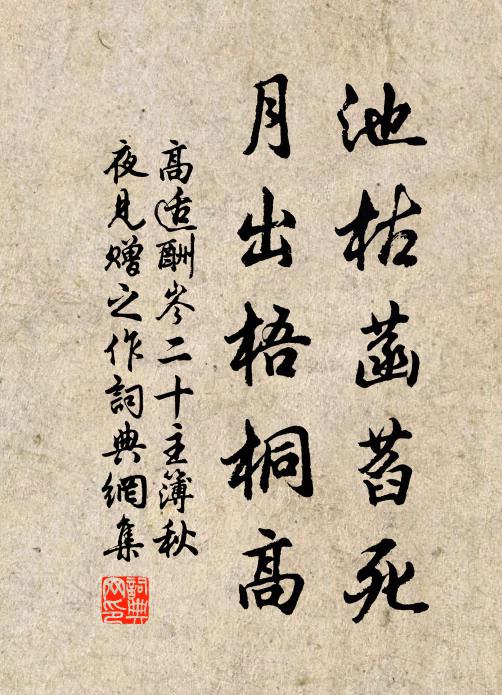 池枯菡萏死
月出梧桐高
高适酬岑二十主簿秋
夜见赠之作词典網集
詞典
网印